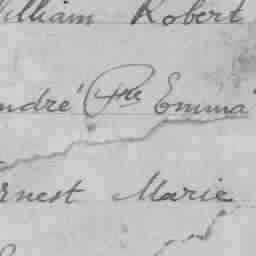 William Robert
André Emma
Ernest Marie